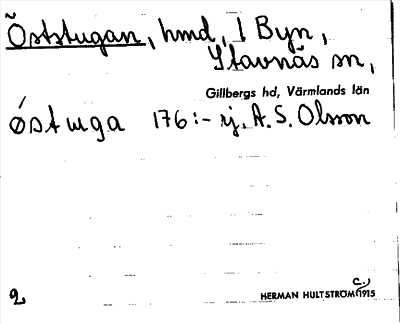 Öststugan, hmd, 1 Byn,
Stavnäs sn,
Gillbergs hd, Värmlands län
østuga 176:- ij. A. S. Olsson
c.)
2 HERMAN HULTSTRÖM 1915